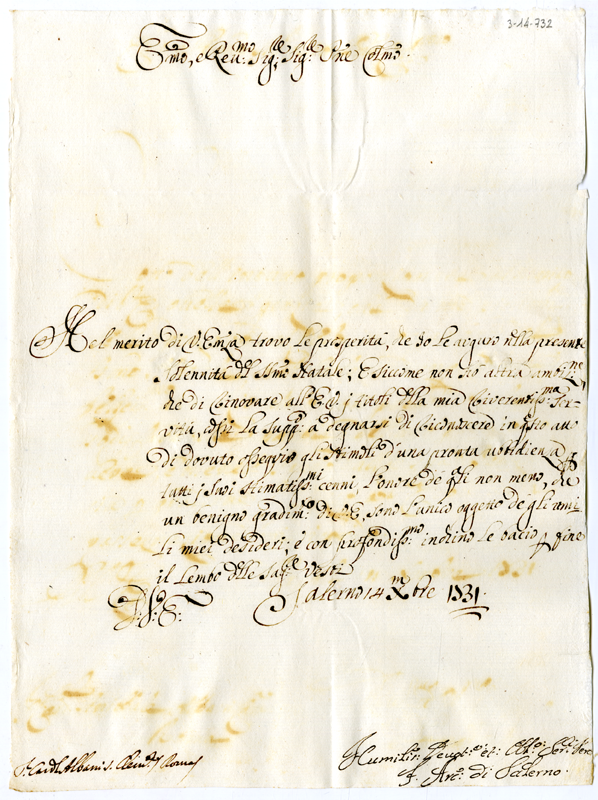 3-14-732
Em͞o, e Reu:mo Sig:re Sig:re Pr͞ne Col͞mo.
Nel merito di V. Em͞za trovo le prosperità, che io le auguro nella presente
solennità del SS͞mo Natale; E siccome non hò altra ambiz:ne
che di rinovare all'E.V. i titoli della mia riverentiss:ma ser-
vitù, così La supp:co a degnarsi di riconoscere in q͞sto atto
di dovuto ossequio gli stimoli d'una pronta ubbidienza à
tutti i suoi stimatiss:mi cenni; L'onore de q͞li non meno, che
un benigno gradim:to di V.E. sono l'unico oggetto de gli umi-
li miei desideri; e con profondiss:mo inchino le bacio p fine
il lembo delle sag:re vesti
D. V. E. Salerno 14 Xm͞bre 1731
S: Card: Albani S. Clem:te Roma
Humilis:mo Deuot:mo et Obl:mo Ser:re Vero
Arc: di Salerno.